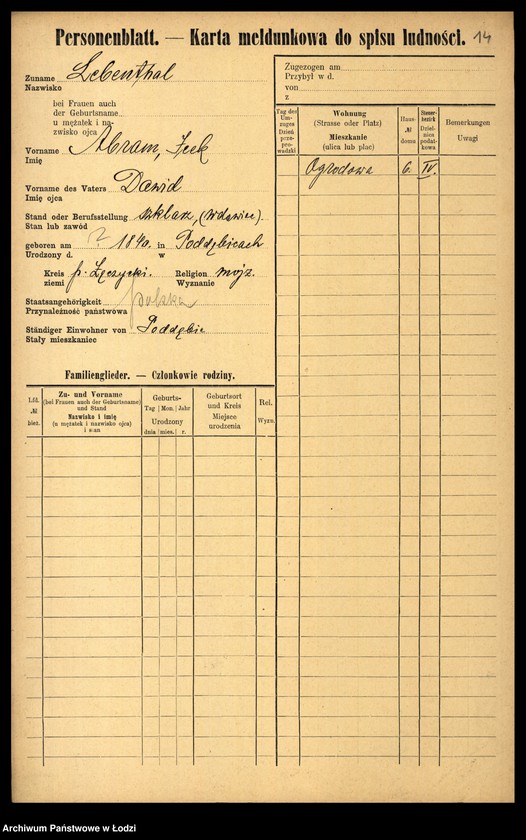 Personenblatt. — Karta meldunkowa do spisu ludności. 14
Zuname Lebenthal
Nazwisko
bei Frauen auch
der Geburtsname
u mężatek i na-
zwisko ojca
Vorname Abram, Icek
Imię
Vorname des Vaters Dawid
Imię ojca
Stand oder Berufsstellung szklarz, (wdowiec).
Stan lub zawód
geboren am ? 1840. in Poddębicach
Urodzony d. w
Kreis p. Łęczycki. Religion mojż.
ziemi Wyznanie
Staatsangehörigkeit polska
Przynależność państwowa
Ständiger Einwohner von Poddębic
Stały mieszkaniec
Familienglieder. — Członkowie rodziny.
Lfd.
№
bież.
Zu- und Vorname
(bei Frauen auch der Geburtsname)
und Stand
Nazwisko i imię
(u mężatek i nazwisko ojca)
i stan
Geburts-
Tag Mon. Jahr
Urodzony
dnia mies. r.
Geburtsort
und Kreis
Miejsce
urodzenia
Rel.
Wyzn.
Zugezogen am
Przybył w d.
von
z
Tag des
Um-
zuges
Dzień
prze-
pro-
wadzki
Wohnung
(Strasse oder Platz)
Mieszkanie
(ulica lub plac)
Haus-
№
domu
Steuer-
bezirk
Dziel-
nica
podat-
kowa
Bemerkungen
Uwagi
Ogrodowa 6. IV.
Archiwum Państwowe w Łodzi